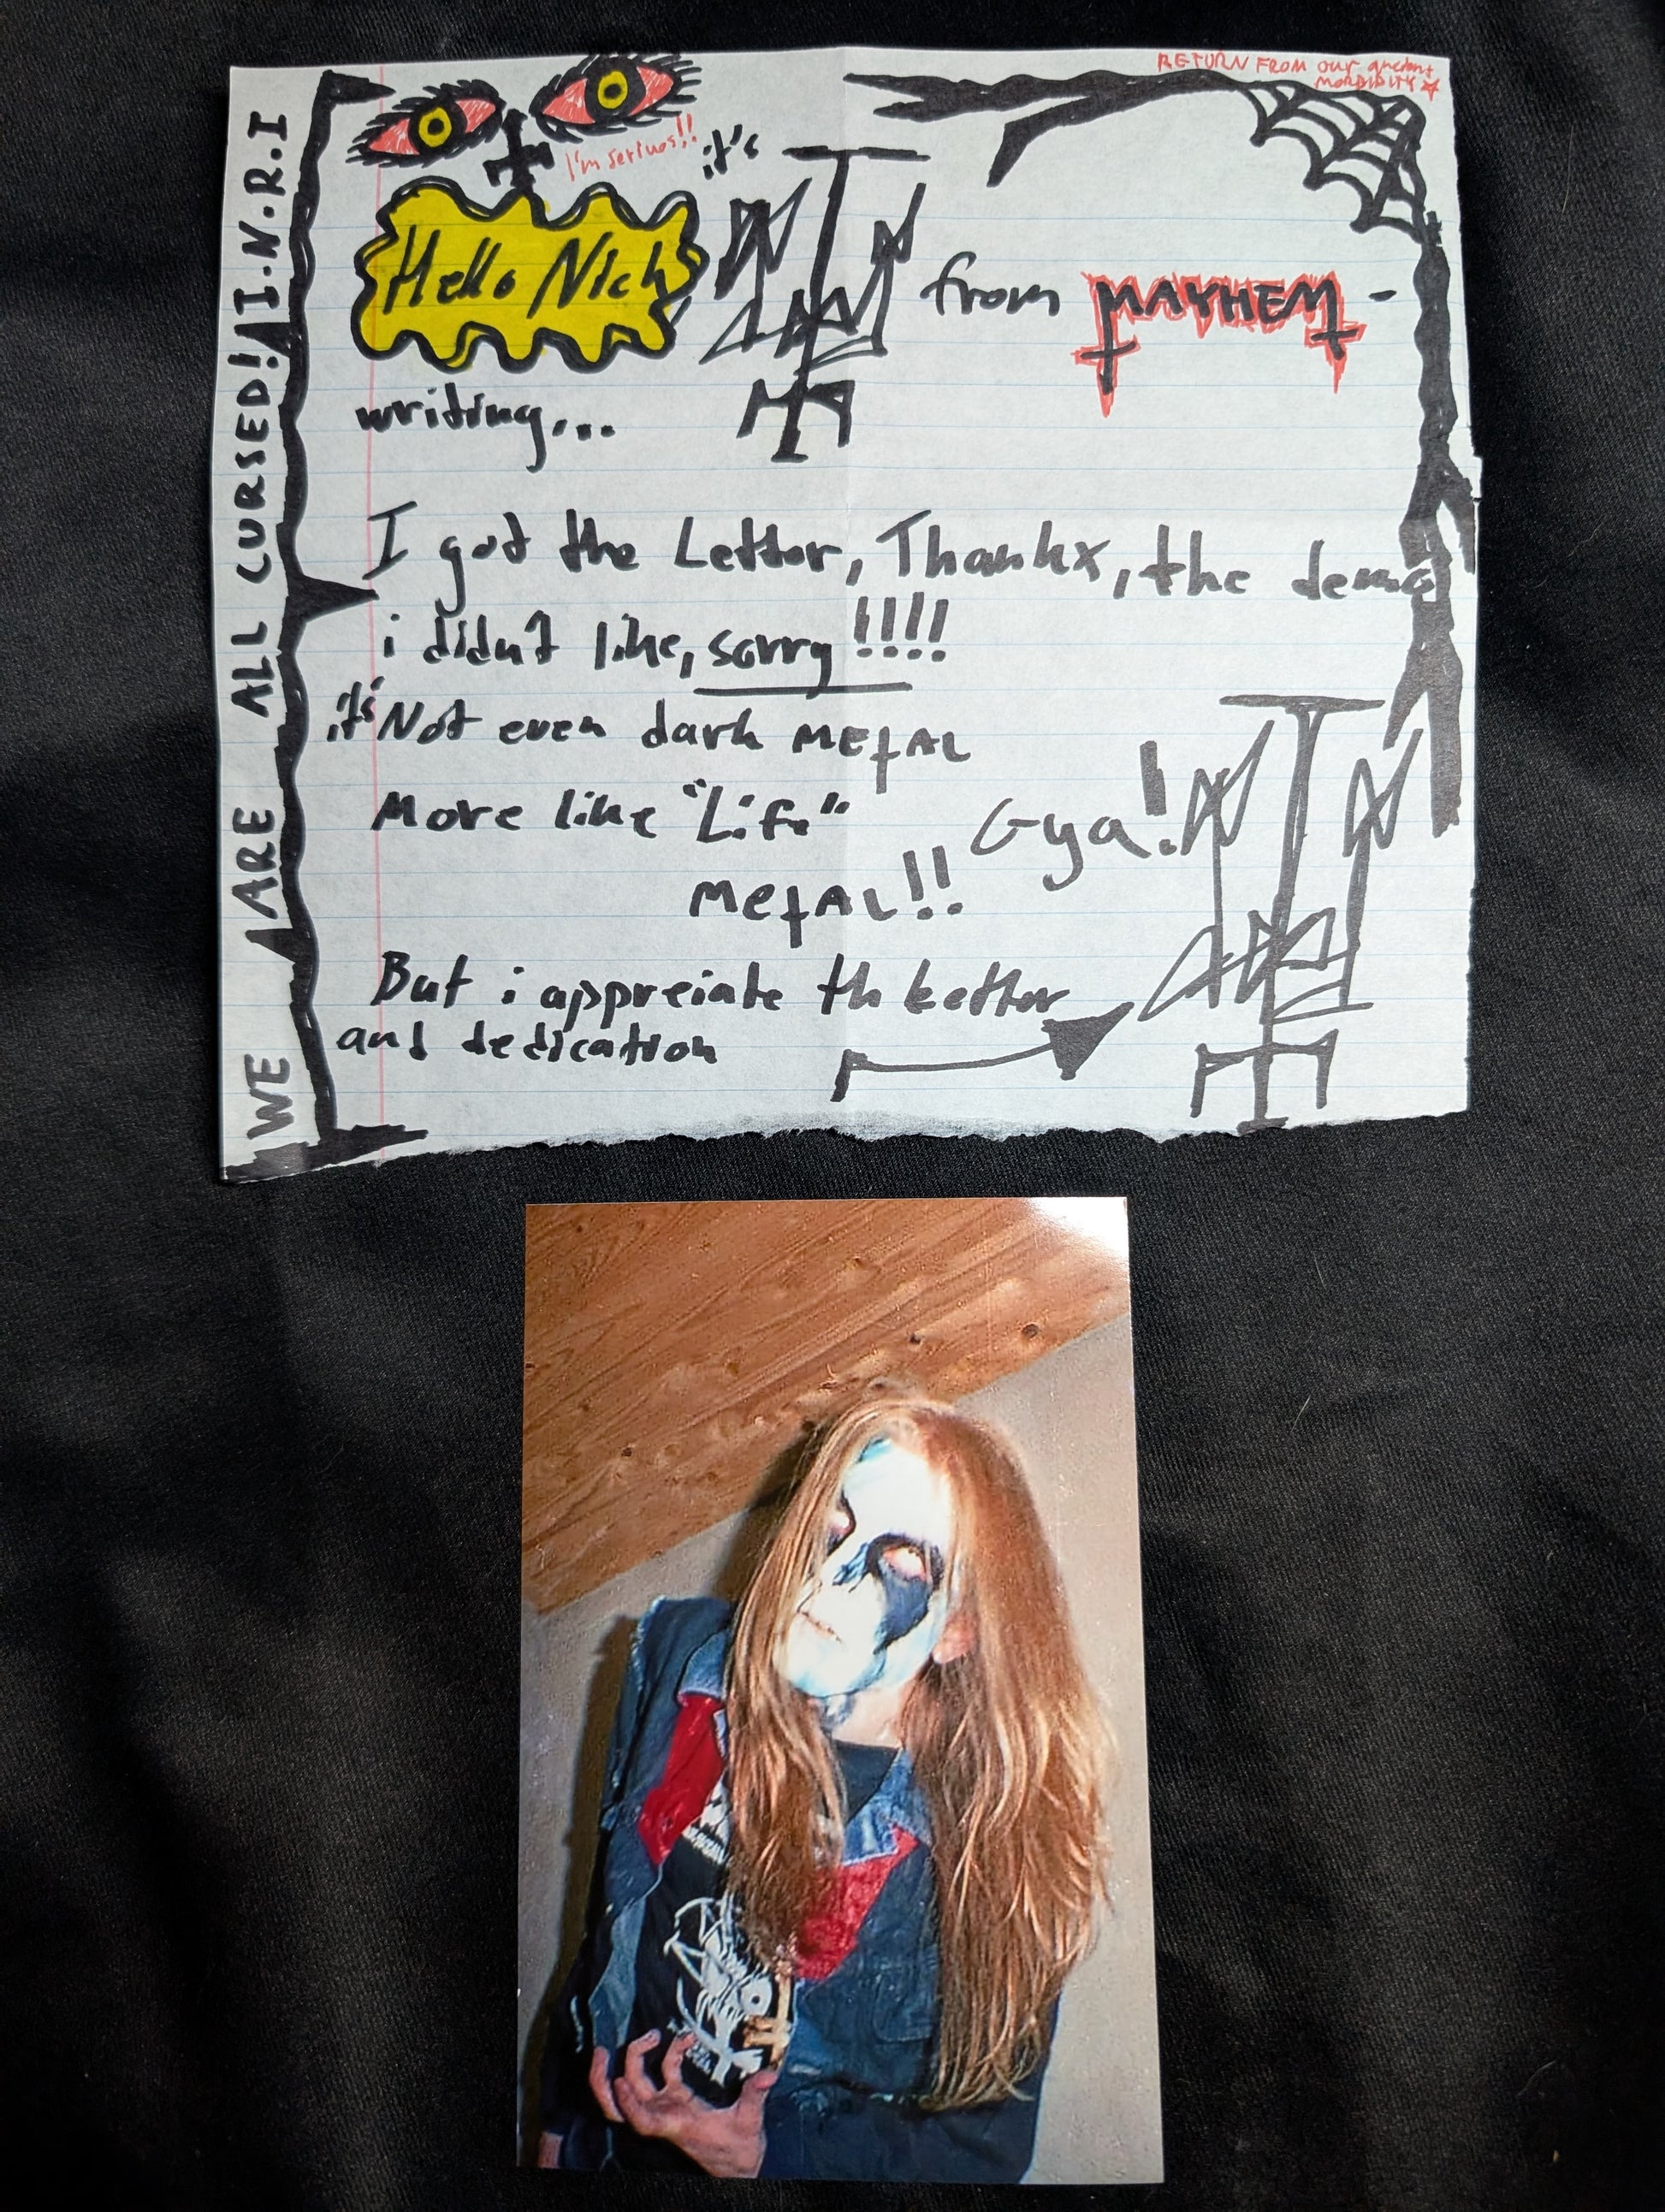 RETURN FROM our ancient
MORBIDITY
I'm serious!!
it's
Hello Nick
from MAYHEM-
writing...
I got the Letter, Thankx, the demo
i didnt like, sorry!!!!
it's Not even dark METAL
More like "Life"
METAL!!
Gya!
But i appreiate th letter
and dedication
WE ARE ALL CURSED! I.N.R.I